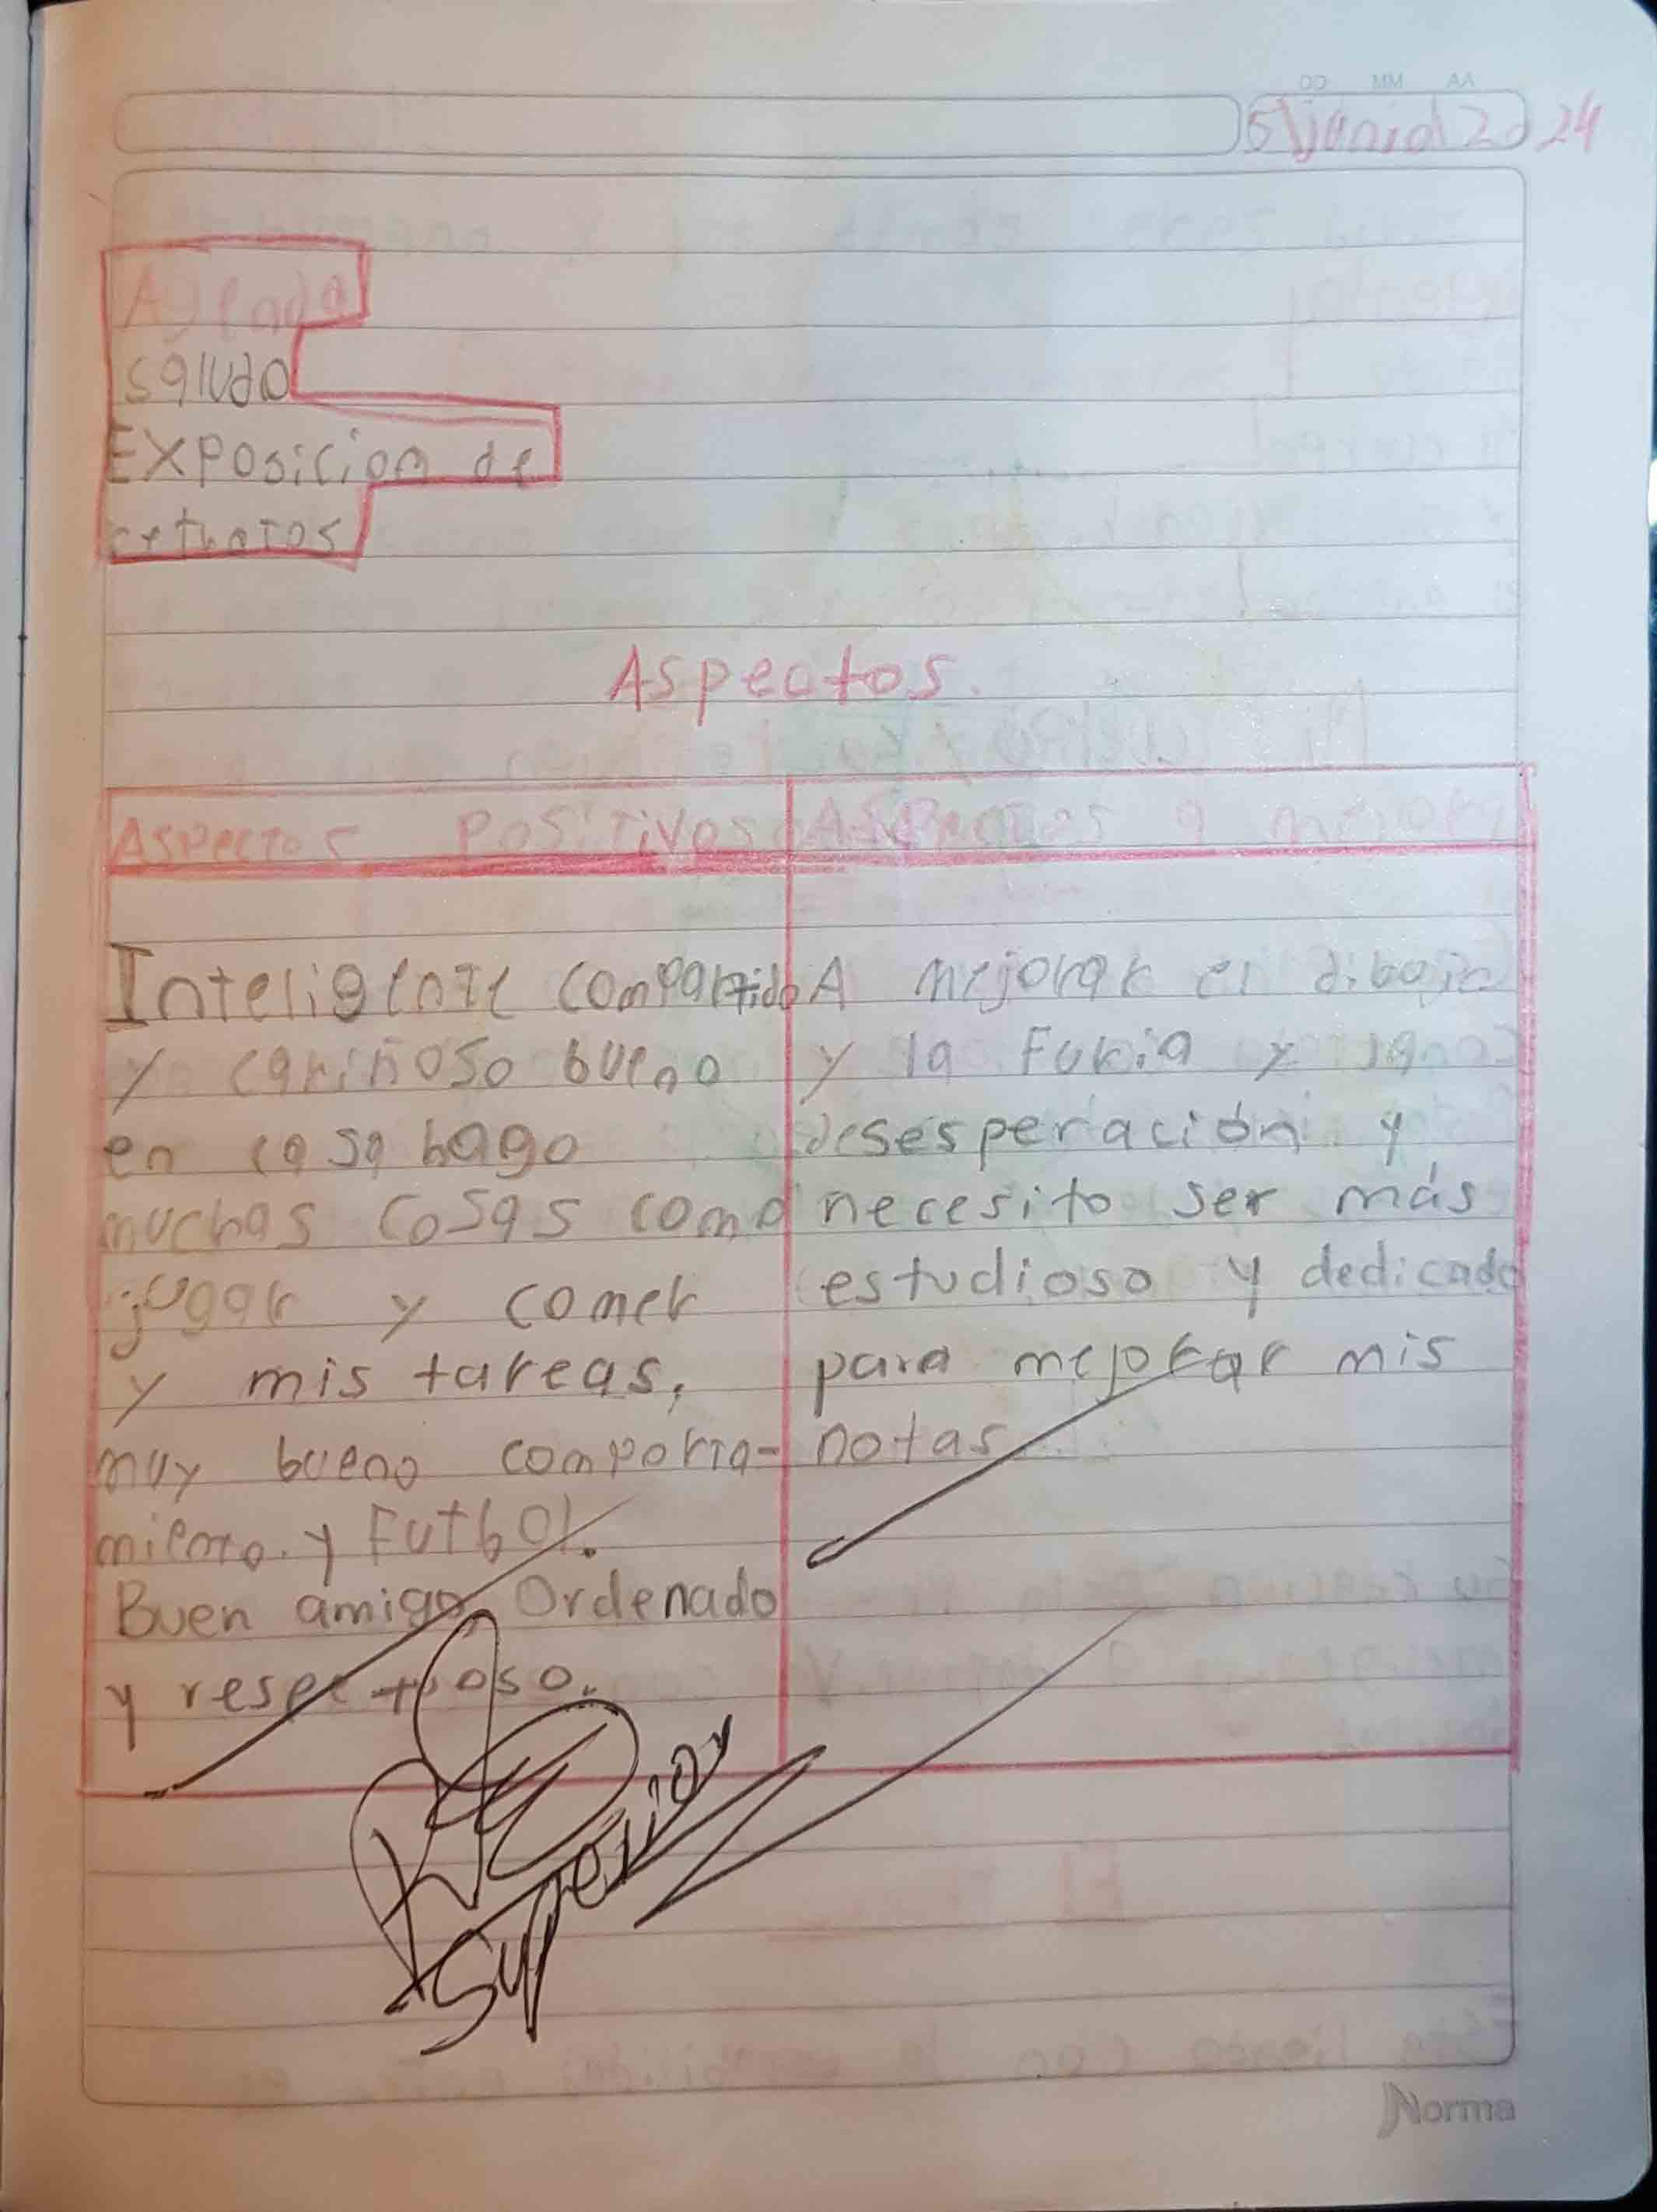 DD MM AA
5 junio 2024
Agenda
saludo
EXPosicion de
rethatos
Aspectos.
Aspectos Positivos
Aspectos a mejora
Inteligente compartido
y cariñoso bueno
en casa hago
muchas cosas como
jugar y comer
y mis tareas,
muy bueno comporta-
miento. y Futbol.
Buen amigo, Ordenado
y respetuoso.
A mejorar el dibujo
y la Furia y la
desesperación y
necesito ser más
estudioso y dedicado
para mejorar mis
notas
Superior
Norma